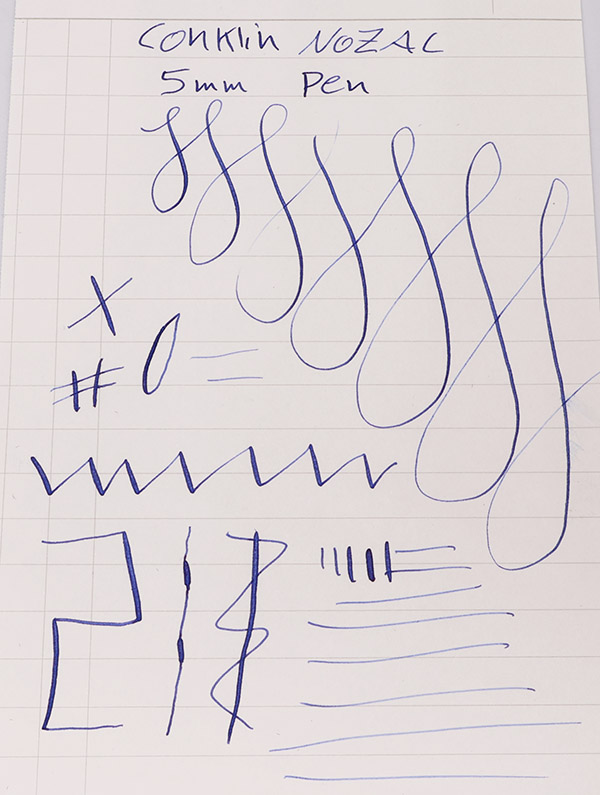 Conklin NOZAC
5mm Pen
X
# 0 =